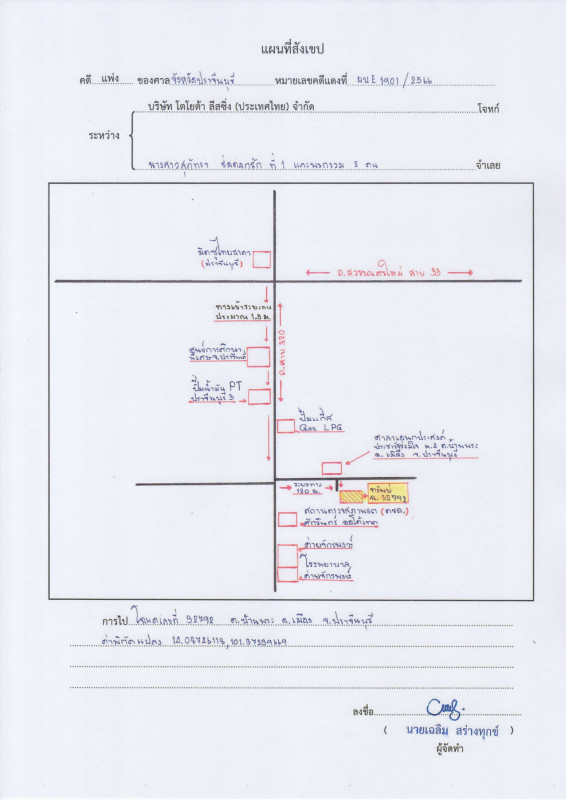 แผนที่สังเขป
คดี แพ่ง ของศาล จังหวัดปราจีนบุรี หมายเลขคดีแดงที่ ผบE 1901/2566
บริษัท โตโยต้า ลีสซิ่ง (ประเทศไทย) จำกัด โจทก์
ระหว่าง
นางสาวสุภัทรา ที่ 1 และพวกรวม คน จำเลย
มิตซูไทยสาคา
(ปราจีนบุรี)
ถ.สุวรรณศรใหม่ สาย 33
ประมาณ 1.3 ม.
ถ.สาย 320
ศูนย์การศึกษา
พิเศษ จ.ปราจีนบุรี
ปั๊มน้ำมัน PT
ปราจีนบุรี 3
ปั๊มแก๊ส
Gas LPG
ศาลาเอนกประสงค์
ต.บ้านพระ
อ.เมือง จ.ปราจีนบุรี
ระยะทาง
120 ม.
ทรัพย์
ฉ. 32792
สถานตรวจสภาพรถ (ตรอ.)
ศักรินทร์ ออโต้เทค
ค่ายจักรพงษ์
โรงพยาบาล
ค่ายจักรพงษ์
การไป โฉนดเลขที่ 32792 ต.บ้านพระ อ.เมือง จ.ปราจีนบุรี
ค่าพิกัดแปลง 14.08726118,101.37239669
ลงชื่อ
( นายเฉลิม สร่างทุกข์ )
ผู้จัดทำ